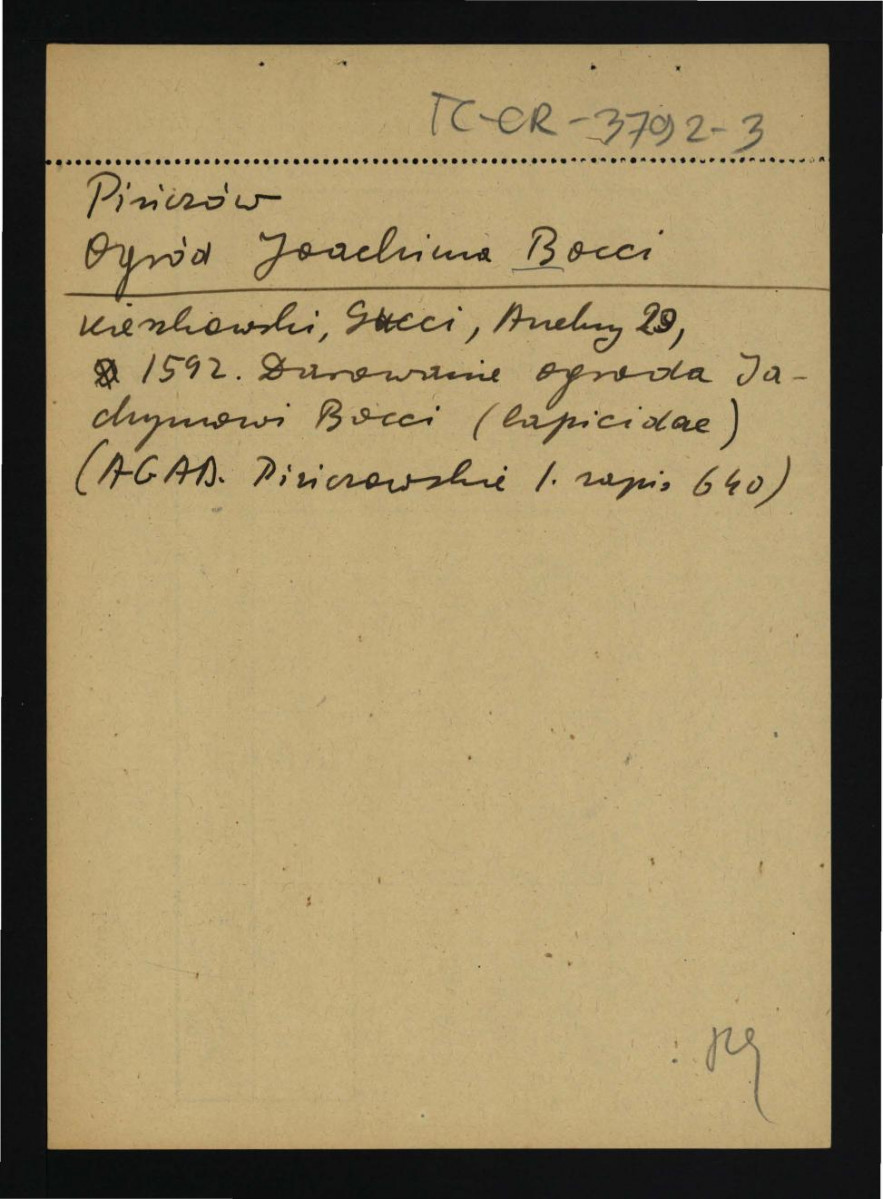 TC-CR-3792-3
Pińczów
Ogród Joachima Bocci
Kieszkowski, Gucci, Aneksy 29,
1592. Darowanie ogroda Ja-
chymowi Bocci (lapicidae)
(AGAD. Pińczowskie 1. zapis 640)